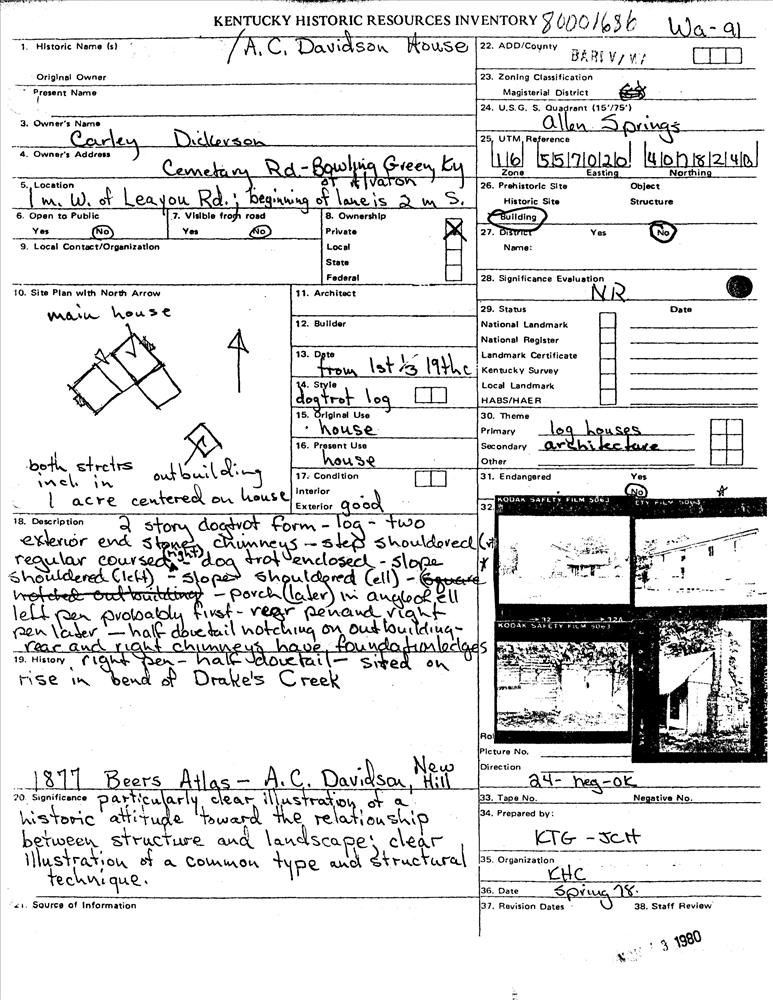 KENTUCKY HISTORIC RESOURCES INVENTORY 80001686 Wa-91
1. Historic Name (s) A. C. Davidson House
Original Owner
Present Name
3. Owner's Name
Carley Dickerson
4. Owner's Address
Cemetary Rd - Bowling Green, Ky
5. Location of Alvaton
1 m. W. of Leayou Rd.; beginning of lane is 2 m S.
6. Open to Public
Yes No
7. Visible from road
Yes No
8. Ownership
Private
Local
State
Federal
9. Local Contact/Organization
10. Site Plan with North Arrow
main house
both strctrs
incl. in outbuilding
1 acre centered on house
11. Architect
12. Builder
13. Date
from 1st 1/3 19th c
14. Style
dogtrot log
15. Original Use
house
16. Present Use
house
17. Condition
Interior
Exterior good
18. Description 2 story dogtrot form - log - two
exterior end stone chimneys - step shouldered
regular coursed (right) - dog trot enclosed - slope
shouldered (left) - slope shouldered (ell) - square
notched outbuilding - porch (later) in angle of ell
left pen probably first - rear pen and right
pen later - half dovetail notching on outbuilding -
rear and right chimneys have foundation ledges
19. History right pen - half dovetail - sited on
rise in bend of Drake's Creek
1877 Beers Atlas - A. C. Davidson, New Hill
20. Significance particularly clear illustration of a
historic attitude toward the relationship
between structure and landscape; clear
illustration of a common type and structural
technique.
21. Source of Information
22. ADD/County
23. Zoning Classification
Magisterial District
24. U.S.G. S. Quadrant (15'/75')
Allen Springs
25. UTM Reference
16 557020 4078240
Zone Easting Northing
26. Prehistoric Site Object
Historic Site Structure
Building
27. District Yes No
Name:
28. Significance Evaluation
NR
29. Status Date
National Landmark
National Register
Landmark Certificate
Kentucky Survey
Local Landmark
HABS/HAER
30. Theme
Primary log houses
Secondary architecture
Other
31. Endangered Yes
No
32.
KODAK SAFETY FILM 5063
ETY FILM 5063
KODAK SAFETY FILM 5063
Ro
Picture No.
Direction
24- neg-OK
33. Tape No. Negative No.
34. Prepared by:
KTG - JCH
35. Organization
KHC
36. Date Spring 78.
37. Revision Dates 38. Staff Review
3 1980